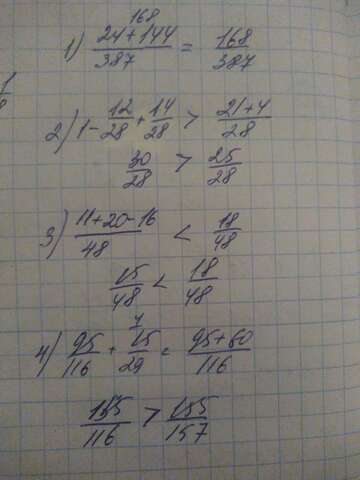 168
1) (24+144)/387 = 168/387
2) 1 - 12/28 + 14/28 > (21+4)/28
30/28 > 25/28
3) (11+20-16)/48 < 18/48
15/48 < 18/48
4) 95/116 + 15/29 = (95+60)/116
155/116 > 155/157